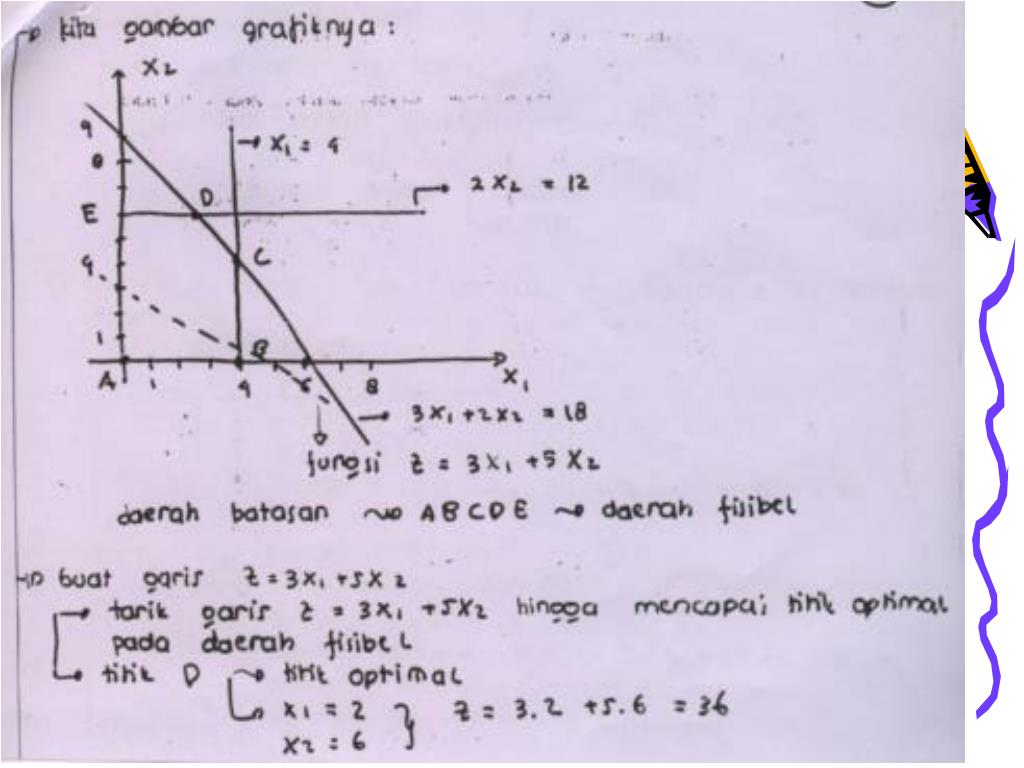 → kita gambar grafiknya :
X2
9
8
→ X1 = 4
D
→ 2X2 = 12
E
C
4
1
B
A 1 4 6 8 X1
→ 3X1 + 2X2 = 18
fungsi Z = 3X1 + 5X2
daerah batasan ~> ABCDE ~> daerah fisibel
→ buat garis Z = 3X1 + 5X2
→ tarik garis Z = 3X1 + 5X2 hingga mencapai titik optimal
pada daerah fisibel
→ titik D ~> titik optimal
X1 = 2 } Z = 3.2 + 5.6 = 36
X2 = 6